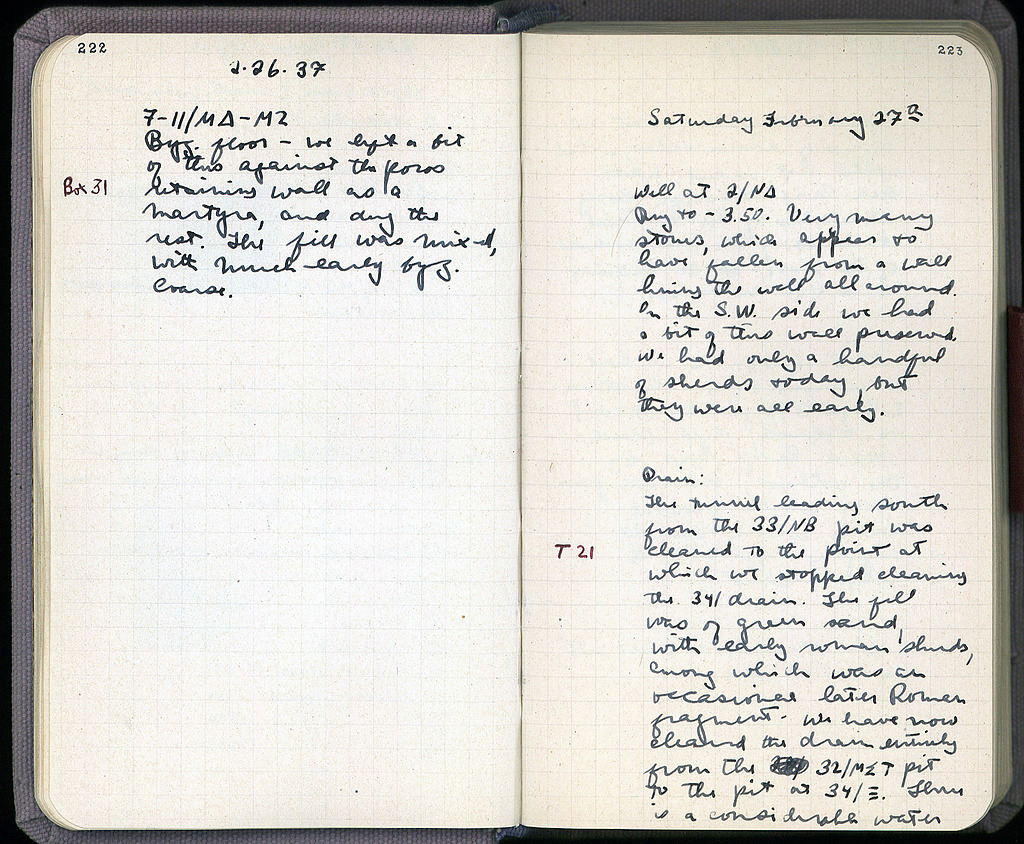 222
2.26.37
7-11/ΜΔ-ΜΖ
Byz. floor - we left a bit
of this against the poros
Box 31
retaining wall as a
martyra, and dug the
rest. The fill was mixed,
with much early byz.
coarse.
223
Saturday February 27th
Well at 2/ΝΔ
Dug to - 3.50. Very many
stones, which appear to
have fallen from a wall
lining the well all around.
On the S.W. side we had
a bit of this wall preserved.
We had only a handful
of sherds today, but
they were all early.
Drain:
The tunnel leading south
from the 33/ΝΒ pit was
T 21
cleaned to the point at
which we stopped cleaning
the 34/ drain. The fill
was of green sand,
with early roman sherds,
among which was an
occasional later Roman
fragment. We have now
cleaned the drain entirely
from the 32/ΜΣΤ pit
to the pit at 34/Ξ. There
is a considerable water